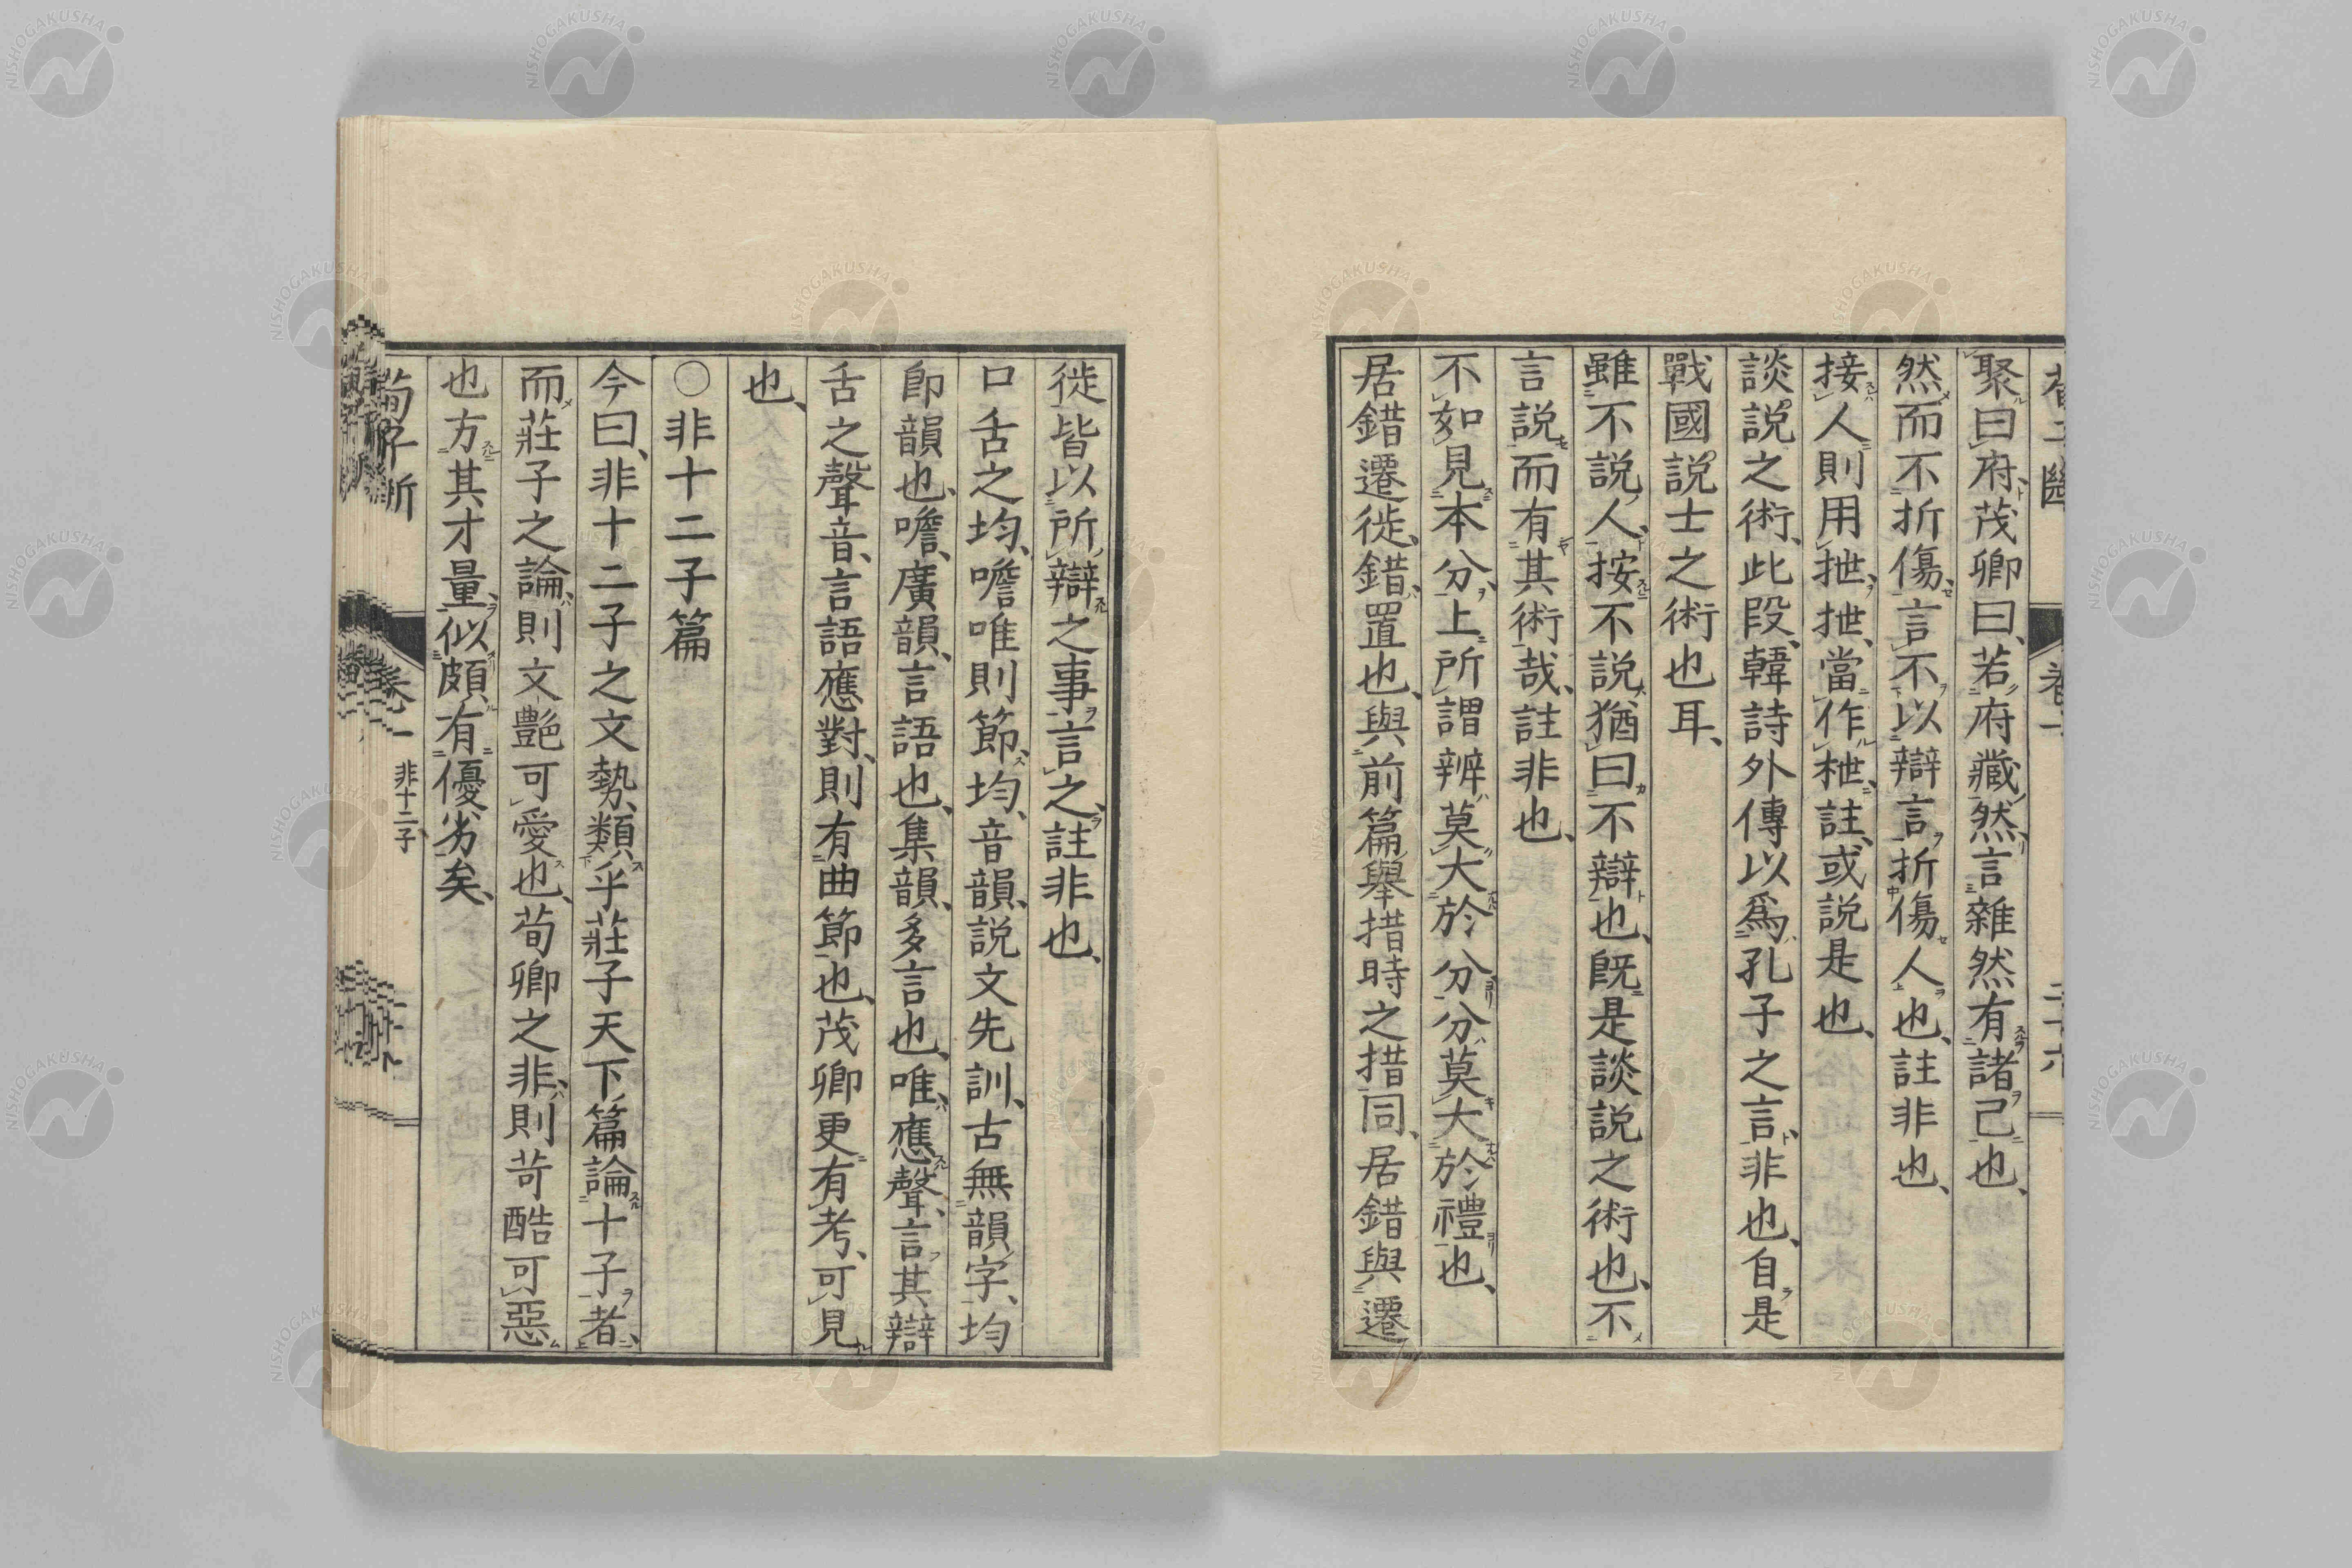 聚曰、府、茂卿曰、若府藏然、言雜然有諸己也、
然而不折傷、言不以辯言折傷人也、註非也、
接人則用抴、抴、當作枻、註、或說是也、
談說之術、此段、韓詩外傳以爲孔子之言、非也、自是
戰國說士之術也耳、
雖不說人、按不說、猶曰不辯也、既是談說之術也、不
言說而有其術哉、註非也、
不如見本分、上所謂辨莫大於分、分莫大於禮也、
居錯遷徙、錯、置也、與前篇舉措時之措同、居錯與遷
徙皆以所辯之事言之、註非也、
口舌之均、噡唯則節、均、音韻、說文先訓、古無韻字、均
卽韻也、噡、廣韻、言語也、集韻、多言也、唯、應聲、言其辯
舌之聲音、言語應對、則有曲節也、茂卿更有考、可見
也、
〇非十二子篇
今曰、非十二子之文勢、類乎莊子天下篇論十子者、
而莊子之論、則文艷可愛也、荀卿之非、則苛酷可惡
也、方其才量、似頗有優劣矣、
荀子斷 卷一 非十二子